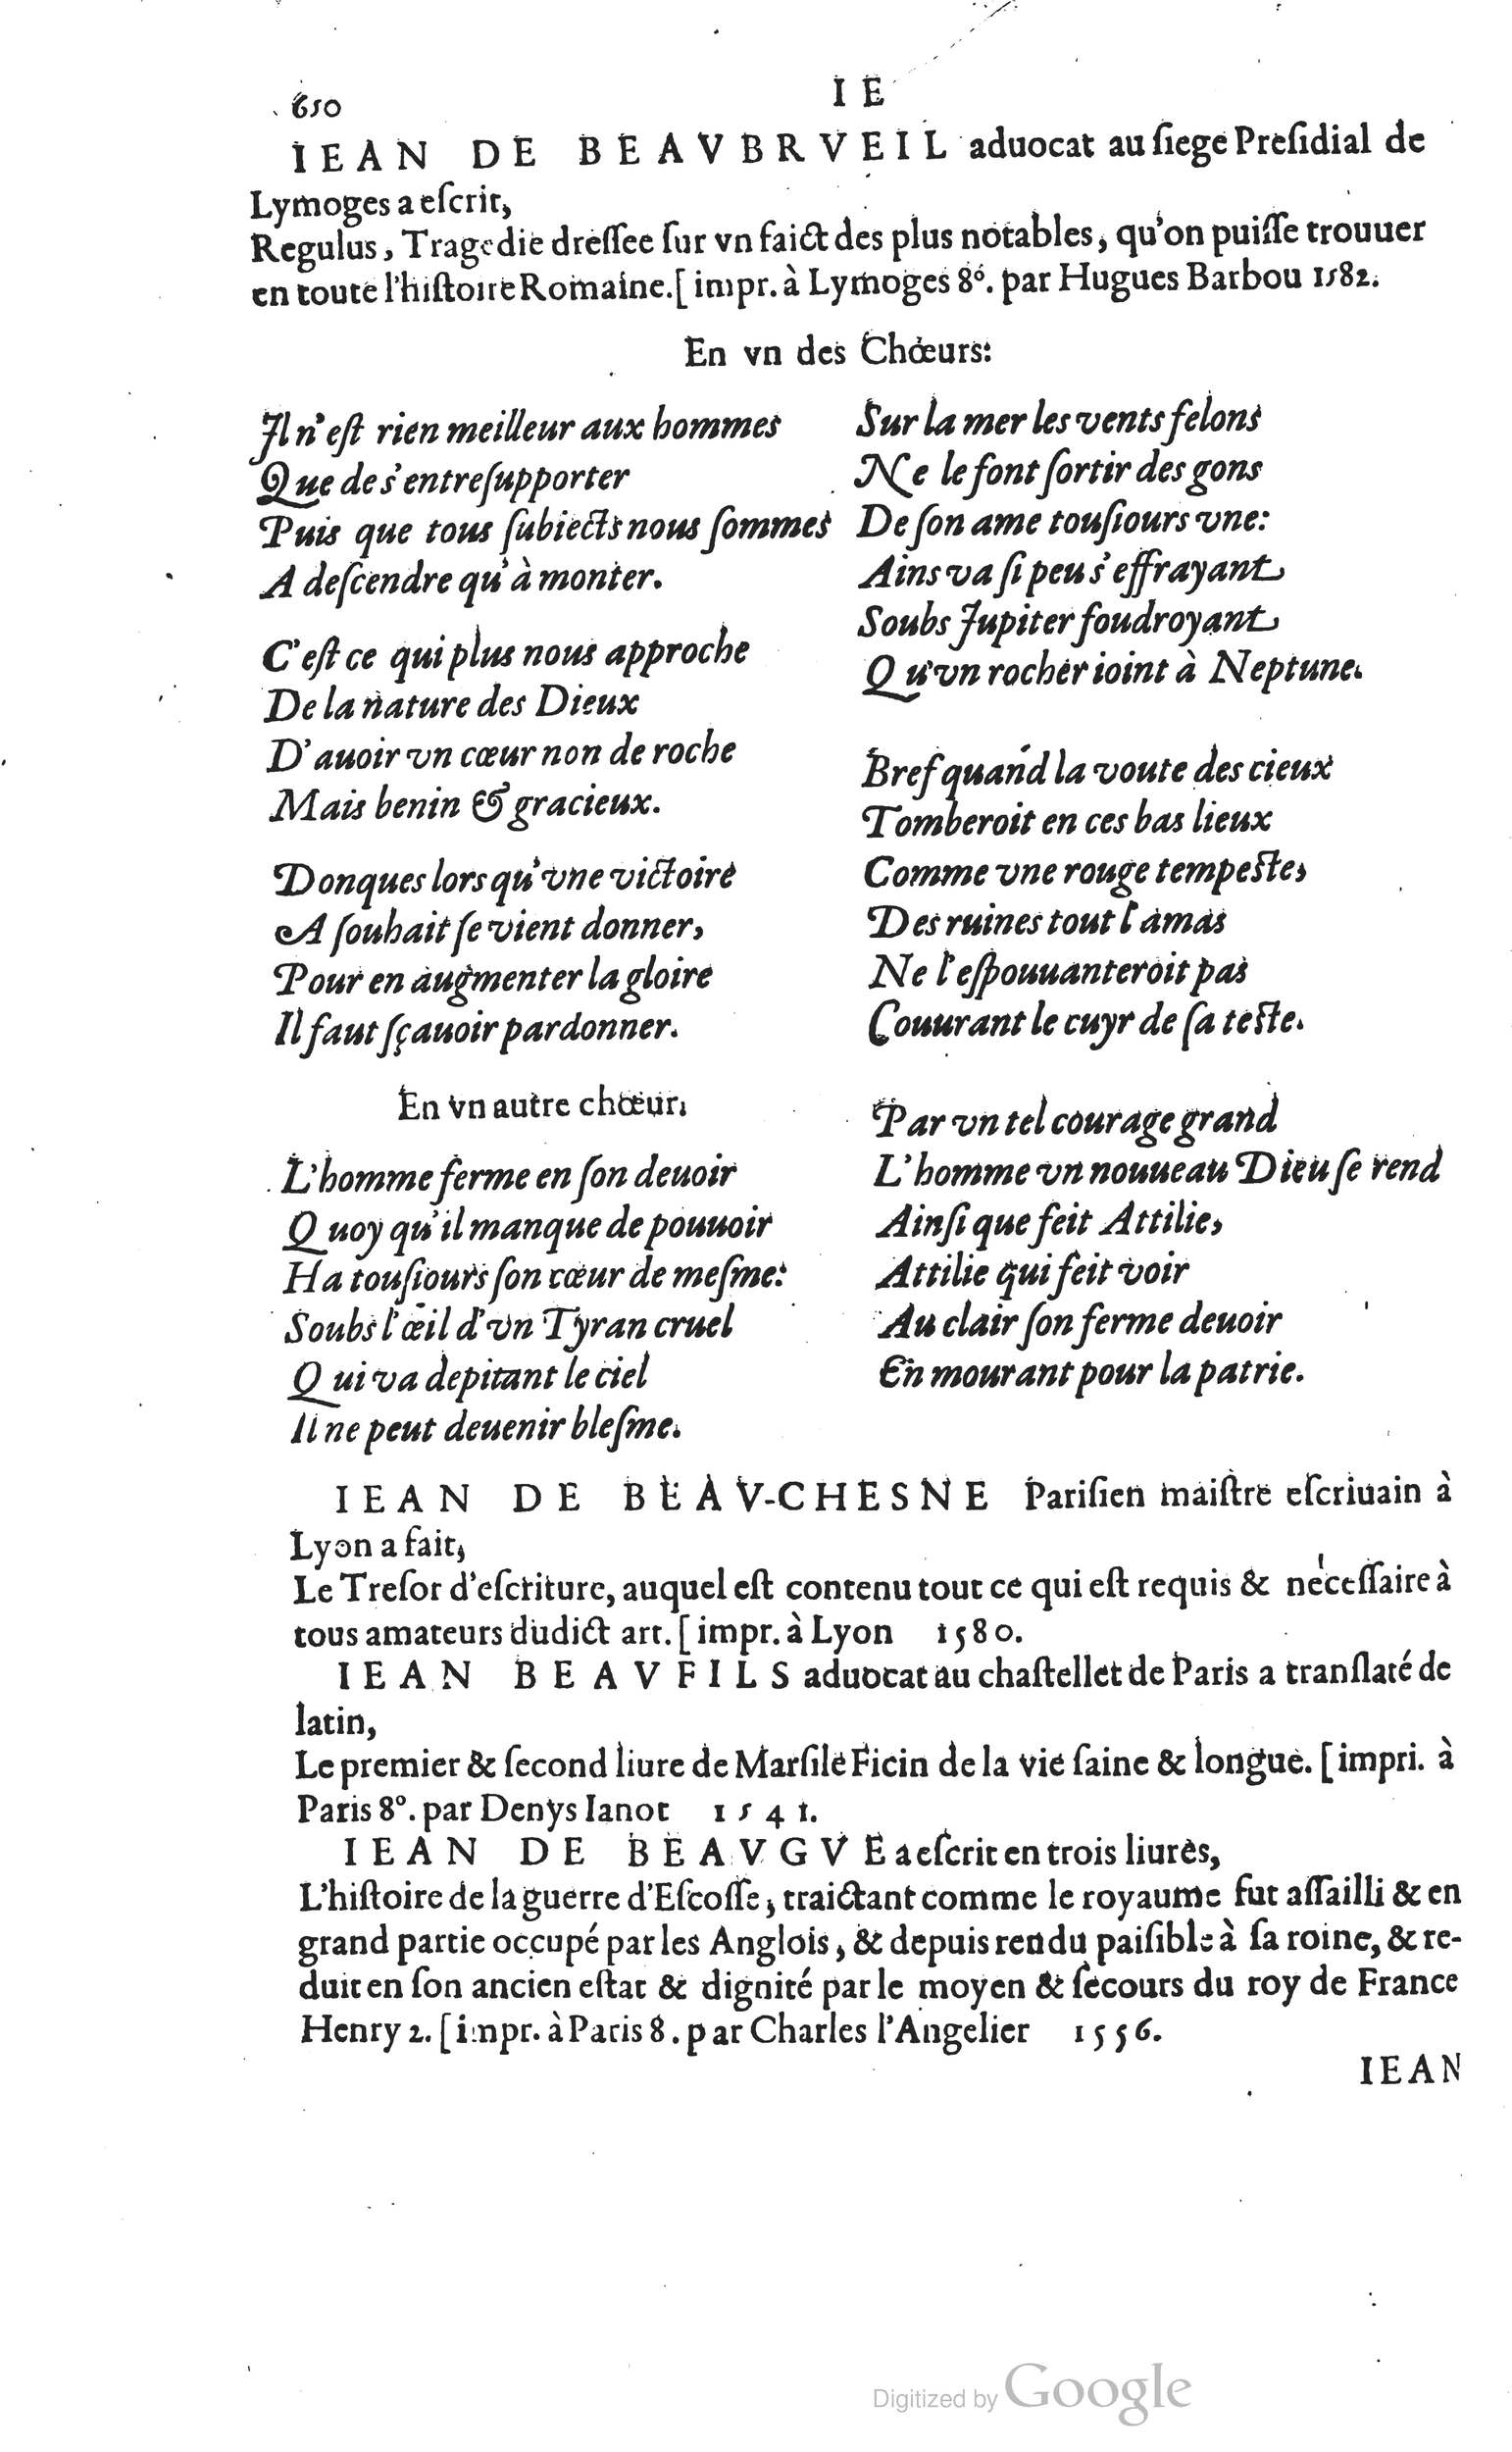 650
I E
IEAN DE BEAVBRVEIL aduocat au ſiege Preſidial de
Lymoges a eſcrit,
Regulus, Tragedie dreſſee ſur vn faict des plus notables, qu'on puiſſe trouuer
en toute l'hiſtoire Romaine.[ impr. à Lymoges 8°. par Hugues Barbou 1582.
En vn des Chœurs:
Il n'eſt rien meilleur aux hommes
Que de s'entreſupporter
Puis que tous ſubiects nous ſommes
A deſcendre qu'à monter.
C'eſt ce qui plus nous approche
De la nature des Dieux
D'auoir vn cœur non de roche
Mais benin & gracieux.
Donques lors qu'vne victoire
A ſouhait ſe vient donner,
Pour en augmenter la gloire
Il faut ſçauoir pardonner.
En vn autre chœur.
L'homme ferme en ſon deuoir
Quoy qu'il manque de pouuoir
Ha touſiours ſon cœur de meſme:
Soubs l'œil d'vn Tyran cruel
Qui va depitant le ciel
Il ne peut deuenir bleſme.
Sur la mer les vents felons
Ne le font ſortir des gons
De ſon ame touſiours vne:
Ains va ſi peu s'effrayant
Soubs Jupiter foudroyant
Qu'vn rocher ioint à Neptune.
Bref quand la voute des cieux
Tomberoit en ces bas lieux
Comme vne rouge tempeſte,
Des ruines tout l'amas
Ne l'eſpouuanteroit pas
Couurant le cuyr de ſa teſte.
Par vn tel courage grand
L'homme vn nouueau Dieu ſe rend
Ainſi que feit Attilie,
Attilie qui feit voir
Au clair ſon ferme deuoir
En mourant pour la patrie.
IEAN DE BEAV-CHESNE Pariſien maiſtre eſcriuain à
Lyon a fait,
Le Treſor d'eſcriture, auquel eſt contenu tout ce qui eſt requis & neceſſaire à
tous amateurs dudict art. [ impr. à Lyon 1580.
IEAN BEAVFILS aduocat au chaſtellet de Paris a tranſlaté de
latin,
Le premier & ſecond liure de Marſile Ficin de la vie ſaine & longue. [impri. à
Paris 8°. par Denys Ianot 1541.
IEAN DE BEAVGVE a eſcrit en trois liures,
L'hiſtoire de la guerre d'Eſcoſſe, traictant comme le royaume fut aſſailli & en
grand partie occupé par les Anglois, & depuis rendu paiſible à ſa roine, & re-
duit en ſon ancien eſtat & dignité par le moyen & ſecours du roy de France
Henry 2. [impr. à Paris 8. par Charles l'Angelier 1556.
IEAN
Digitized by Google